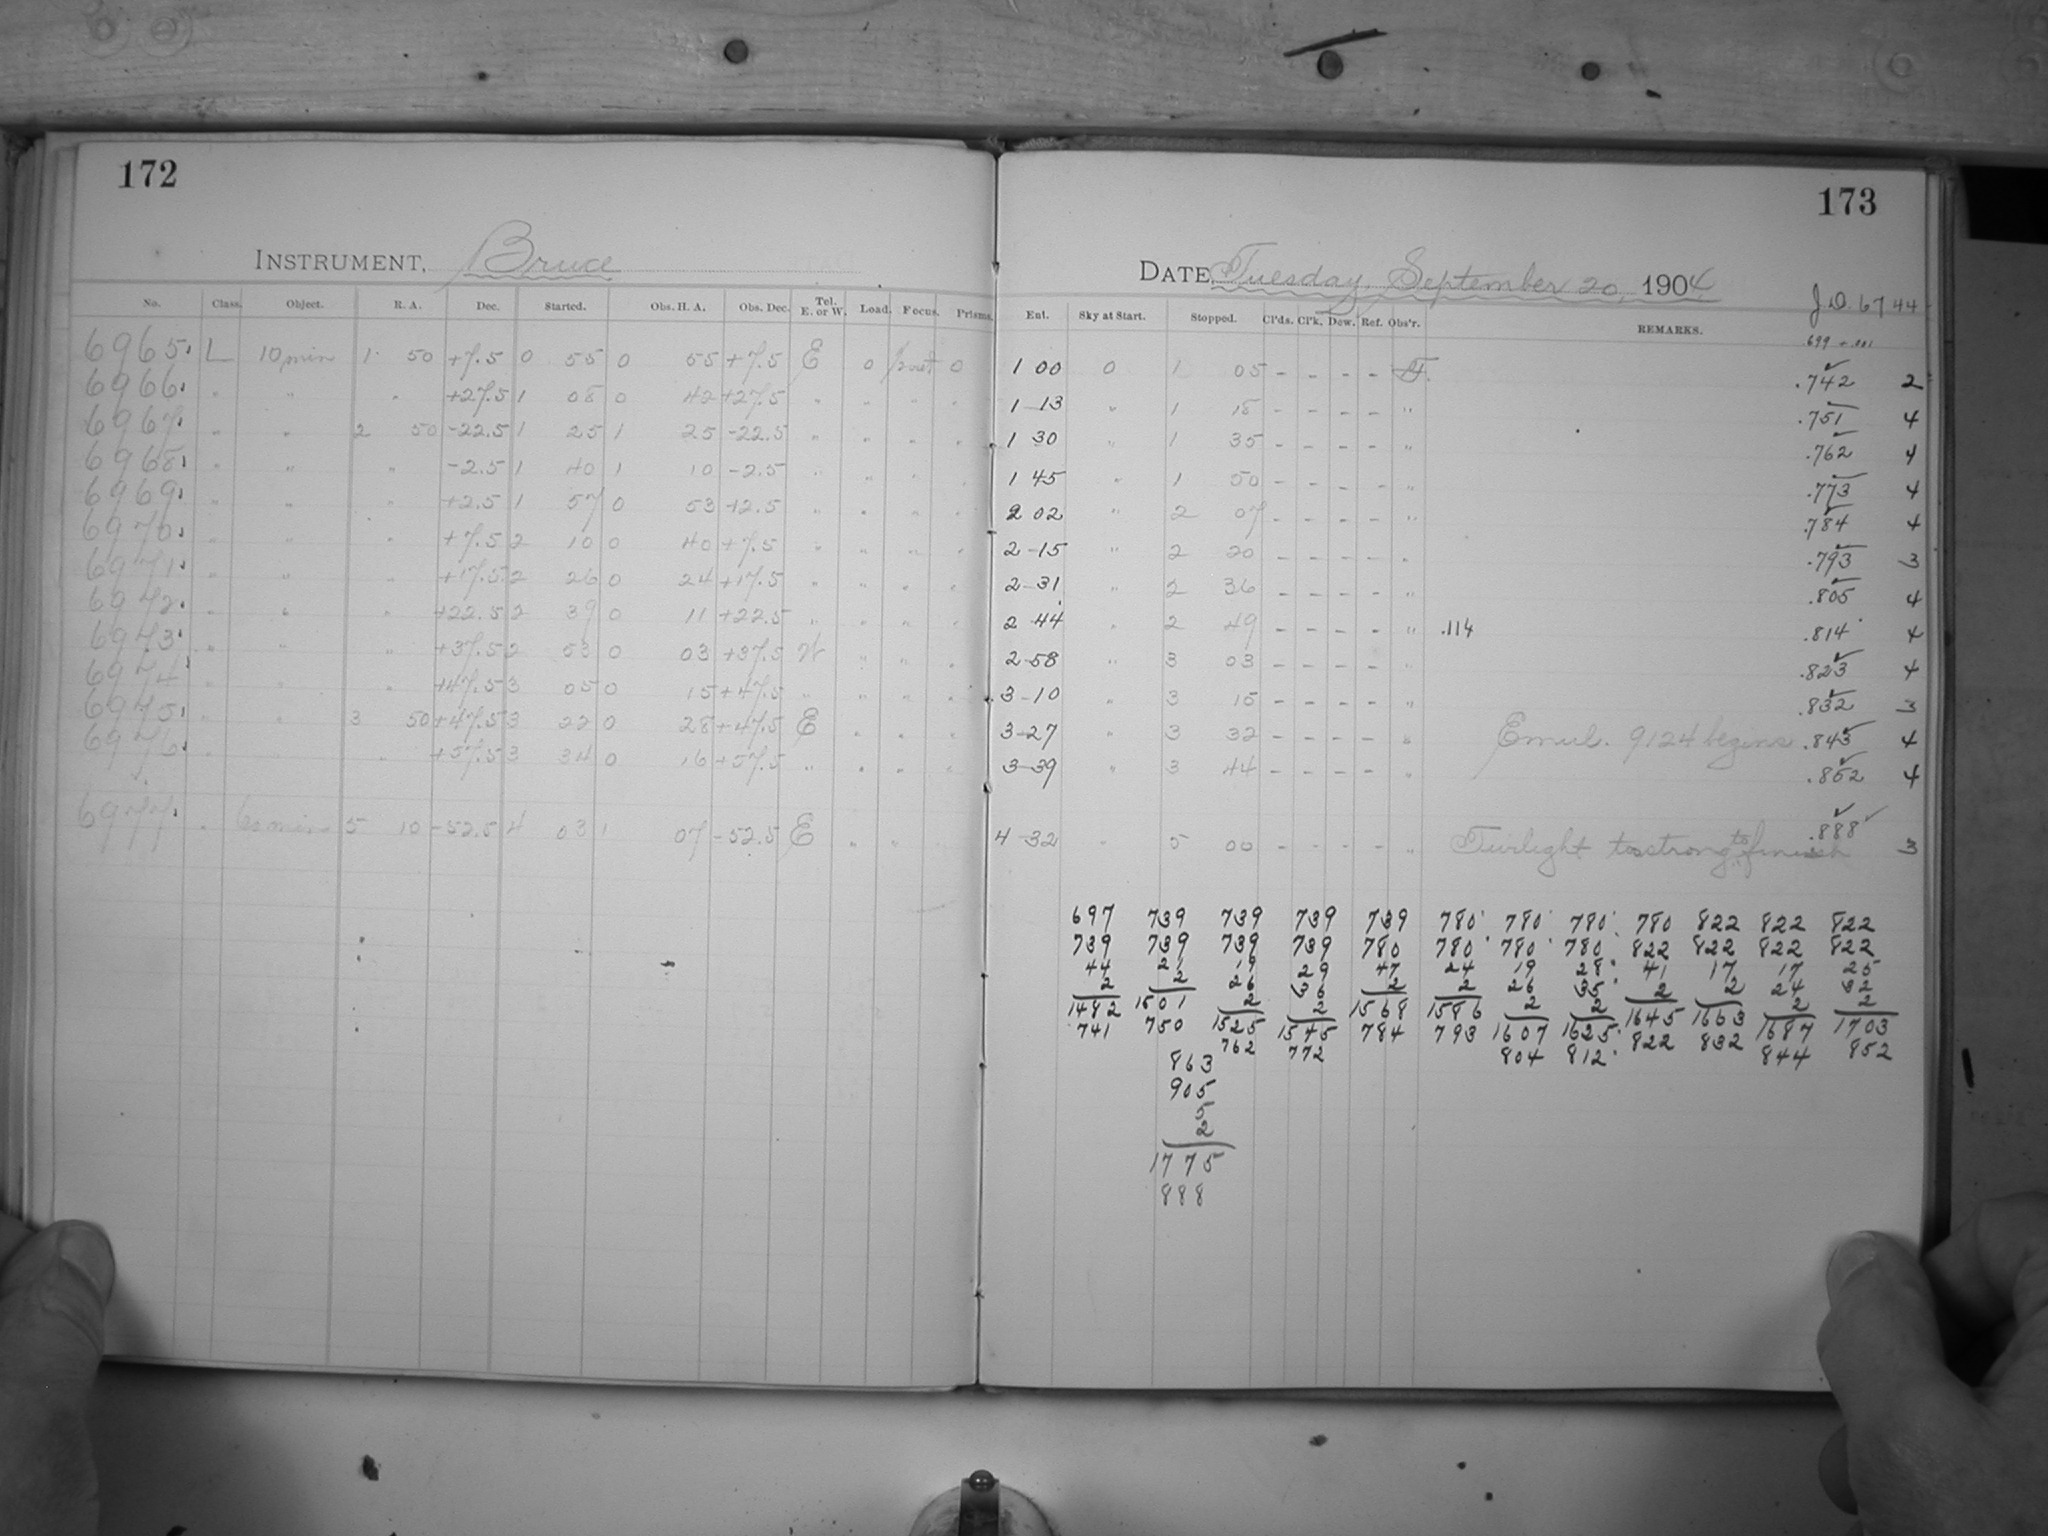 172
INSTRUMENT, Bruce
No. Class. Object. R. A. Dec. Started. Obs. H. A. Obs. Dec. Tel. E. or W. Load. Focus. Prisms.
6965 L 10 min 1 50 +7.5 0 55 0 55 +7.5 E 0 0
6966 " " " +27.5 1 08 0 42 +27.5 " " " "
6967 " " 2 50 -22.5 1 25 1 25 -22.5 " " " "
6968 " " " -2.5 1 40 1 10 -2.5 " " " "
6969 " " " +2.5 1 57 0 53 +2.5 " " " "
6970 " " " +7.5 2 10 0 40 +7.5 " " " "
6971 " " " +17.5 2 26 0 24 +17.5 " " " "
6972 " " " +22.5 2 39 0 11 +22.5 " " " "
6973 " " " +37.5 2 53 0 03 +37.5 W " " "
6974 " " " +47.5 3 05 0 15 +47.5 " " " "
6975 " " 3 50 +47.5 3 22 0 28 +47.5 E " " "
6976 " " " +57.5 3 34 0 16 +57.5 " " " "
6977 " 60 min 5 10 -52.5 4 03 1 07 -52.5 E " "
173
DATE, Tuesday, September 20, 1904
J.D. 6744
Ent. Sky at Start. Stopped. Cl'ds. Cl'k. Dew. Ref. Obs'r. REMARKS.
699 - .001
1 00 0 1 05 - - - - .742 2
1-13 " 1 18 - - - - " .751 4
1 30 " 1 35 - - - - " .762 4
1 45 " 1 50 - - - - " .773 4
2 02 " 2 07 - - - - " .784 4
2-15 " 2 20 - - - - " .793 3
2-31 " 2 36 - - - - " .805 4
2 44 " 2 49 - - - - " .114 .814 4
2-58 " 3 03 - - - - " .823 4
3-10 " 3 15 - - - - " .832 3
3-27 " 3 32 - - - - " Emul. 9124 begins .843 4
3-39 " 3 44 - - - - " .852 4
.888
4-32 " 5 00 - - - - " Twilight too strong to finish 3
697 739 739 739 739 780 780 780 780 822 822 822
739 739 739 739 780 780 780 780 822 822 822 822
44 21 19 29 47 24 19 28 41 17 17 25
2 2 26 36 2 2 26 35 2 2 24 32
1482 1501 2 2 1568 1586 2 2 1645 1663 2 2
741 750 1525 1545 784 793 1607 1625 822 832 1687 1703
762 772 804 812 844 852
863
905
5
2
1775
888